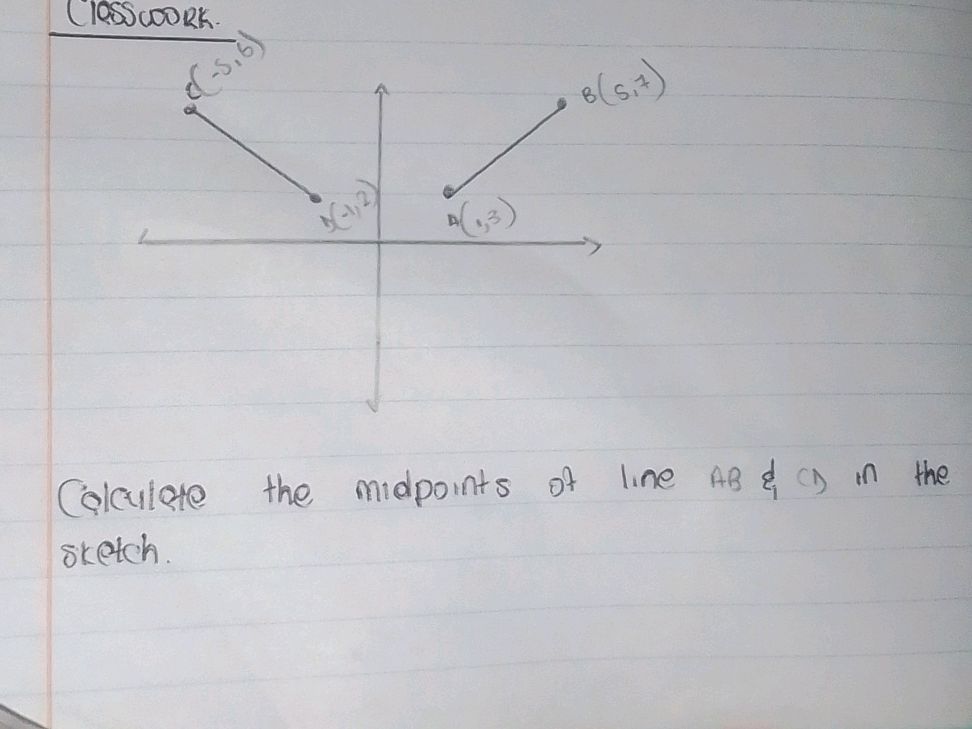 Classwork.
C(-5,6)
B(5,7)
D(-1,2)
A(1,3)
Calculate the midpoints of line AB & CD in the
sketch.